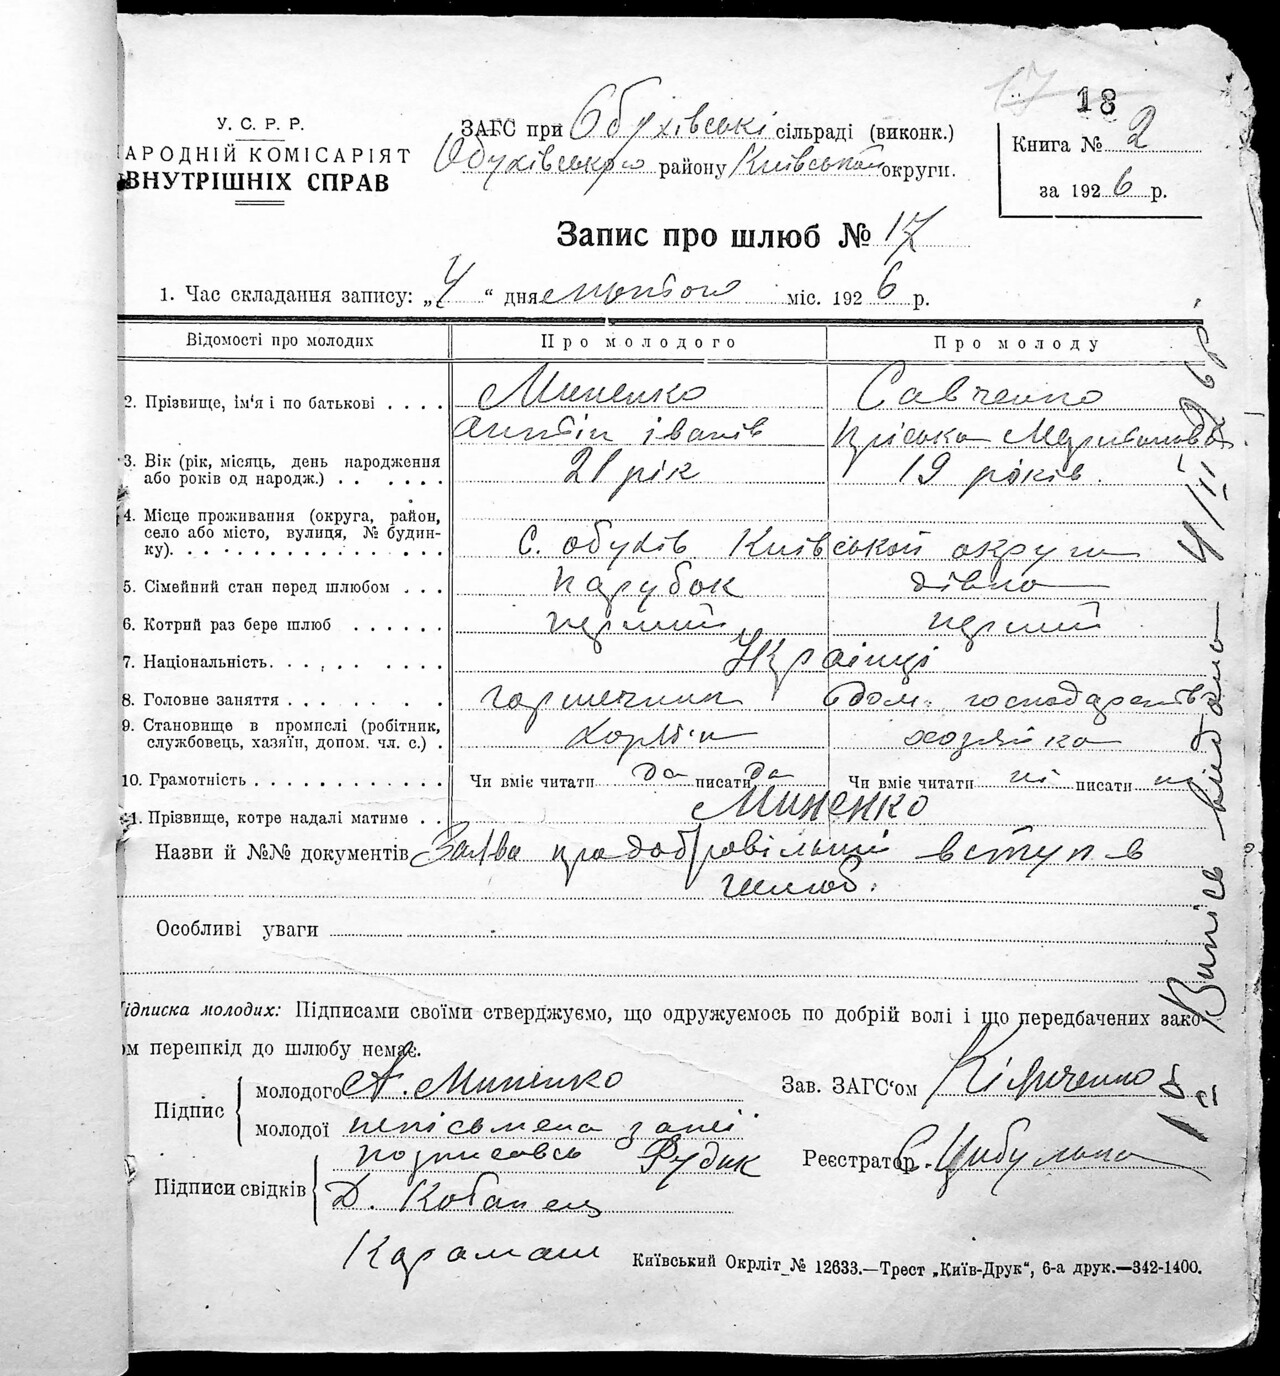 18
У. С. Р. Р.
НАРОДНІЙ КОМІСАРІЯТ
ВНУТРІШНІХ СПРАВ
ЗАГС при Обухівські сільраді (виконк.)
Обухівського району Київської округи.
Книга № 2
за 1926 р.
Запис про шлюб № 17
1. Час складання запису: „4“ дня лютого міс. 1926 р.
Відомості про молодих Про молодого Про молоду
2. Прізвище, ім'я і по батькові . . . . Миненко Савченко
Антін іванів Пріська
3. Вік (рік, місяць, день народження
або років од народж.) . . . . . . 21 рік 19 років.
4. Місце проживання (округа, район,
село або місто, вулиця, № будин-
ку). с. Обухів Київської округи
5. Сімейний стан перед шлюбом . . . парубок дівка
6. Котрий раз бере шлюб . . . . . . перший перший
7. Національність. Українці
8. Головне заняття . . . . . . . . дом. господарств
9. Становище в промислі (робітник,
службовець, хазяїн, допом. чл. с.) . хозяйка
10. Грамотність . . . . . . . . . . . Чи вміє читати да писати да Чи вміє читати ні писати ні
11. Прізвище, котре надалі матиме . . Миненко
Назви й №№ документів Заява про добровільний вступ в
шлюб.
Особливі уваги
Підписка молодих: Підписами своїми стверджуємо, що одружуємось по добрій волі і що передбачених зако-
ом перешкід до шлюбу немає.
Підпис
молодого А. Миненко
молодої непісьмена за неї
подписавсь Рудик
Підписи свідків
Д. Кобанец
Караман
Зав. ЗАГС'ом
Реєстратор С. Цибулько
Київський Окрліт № 12633.—Трест „Київ-Друк“, 6-а друк.—342-1400.
Випісь видана 4/III 26 р.